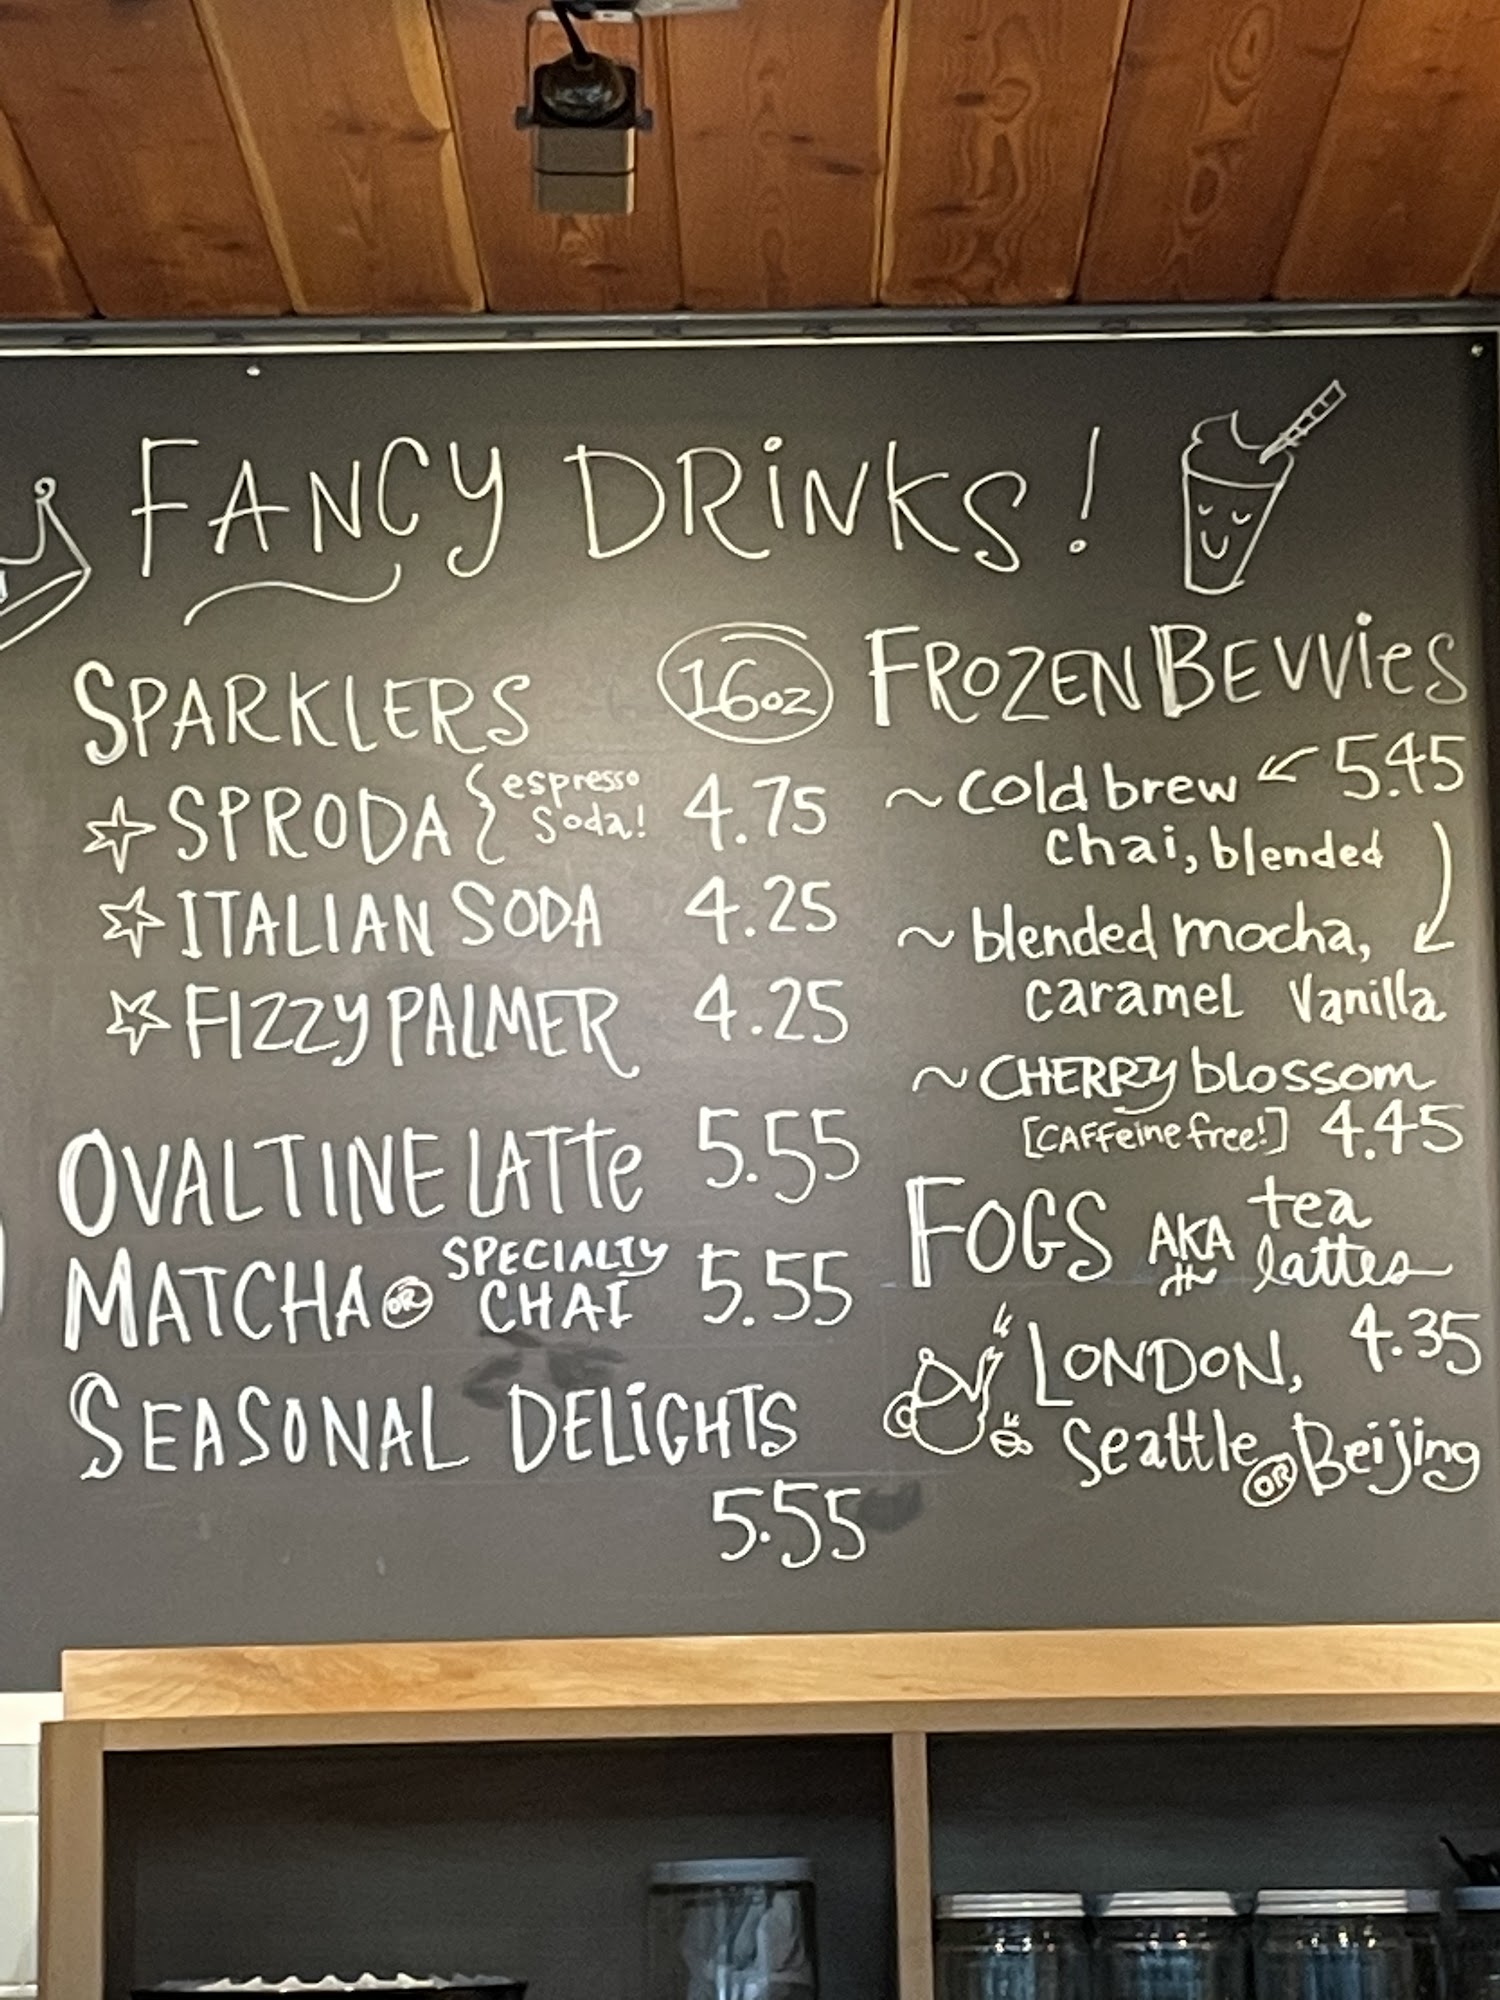 FANCY DRINKS!
SPARKLERS 16oz
SPRODA { espresso soda! 4.75
ITALIAN SODA 4.25
FIZZY PALMER 4.25
OVALTINE LATTe 5.55
MATCHA OR SPECIALTY CHAI 5.55
SEASONAL DELIGHTS
5.55
FROZEN BEVVIeS
~ cold brew ← 5.45
chai, blended
~ blended mocha,
caramel vanilla
~ CHERRY blossom
[CAFFeine free!] 4.45
FOGS AKA the tea lattes
LONDON, 4.35
Seattle OR Beijing